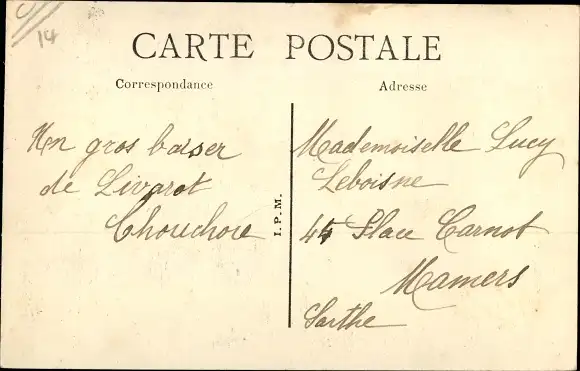 14
CARTE POSTALE
Correspondance
Adresse
Un gros baiser
de Livarot
Chouchou
I.P.M.
Mademoiselle Lucy
Leboisne
44 Place Carnot
Mamers
Sarthe